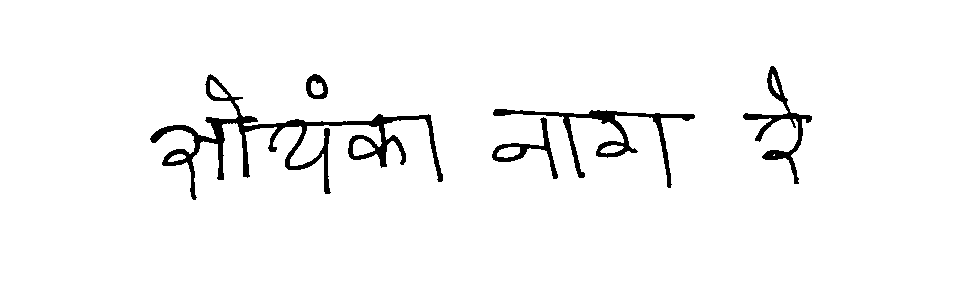 सोयंका नाग रे